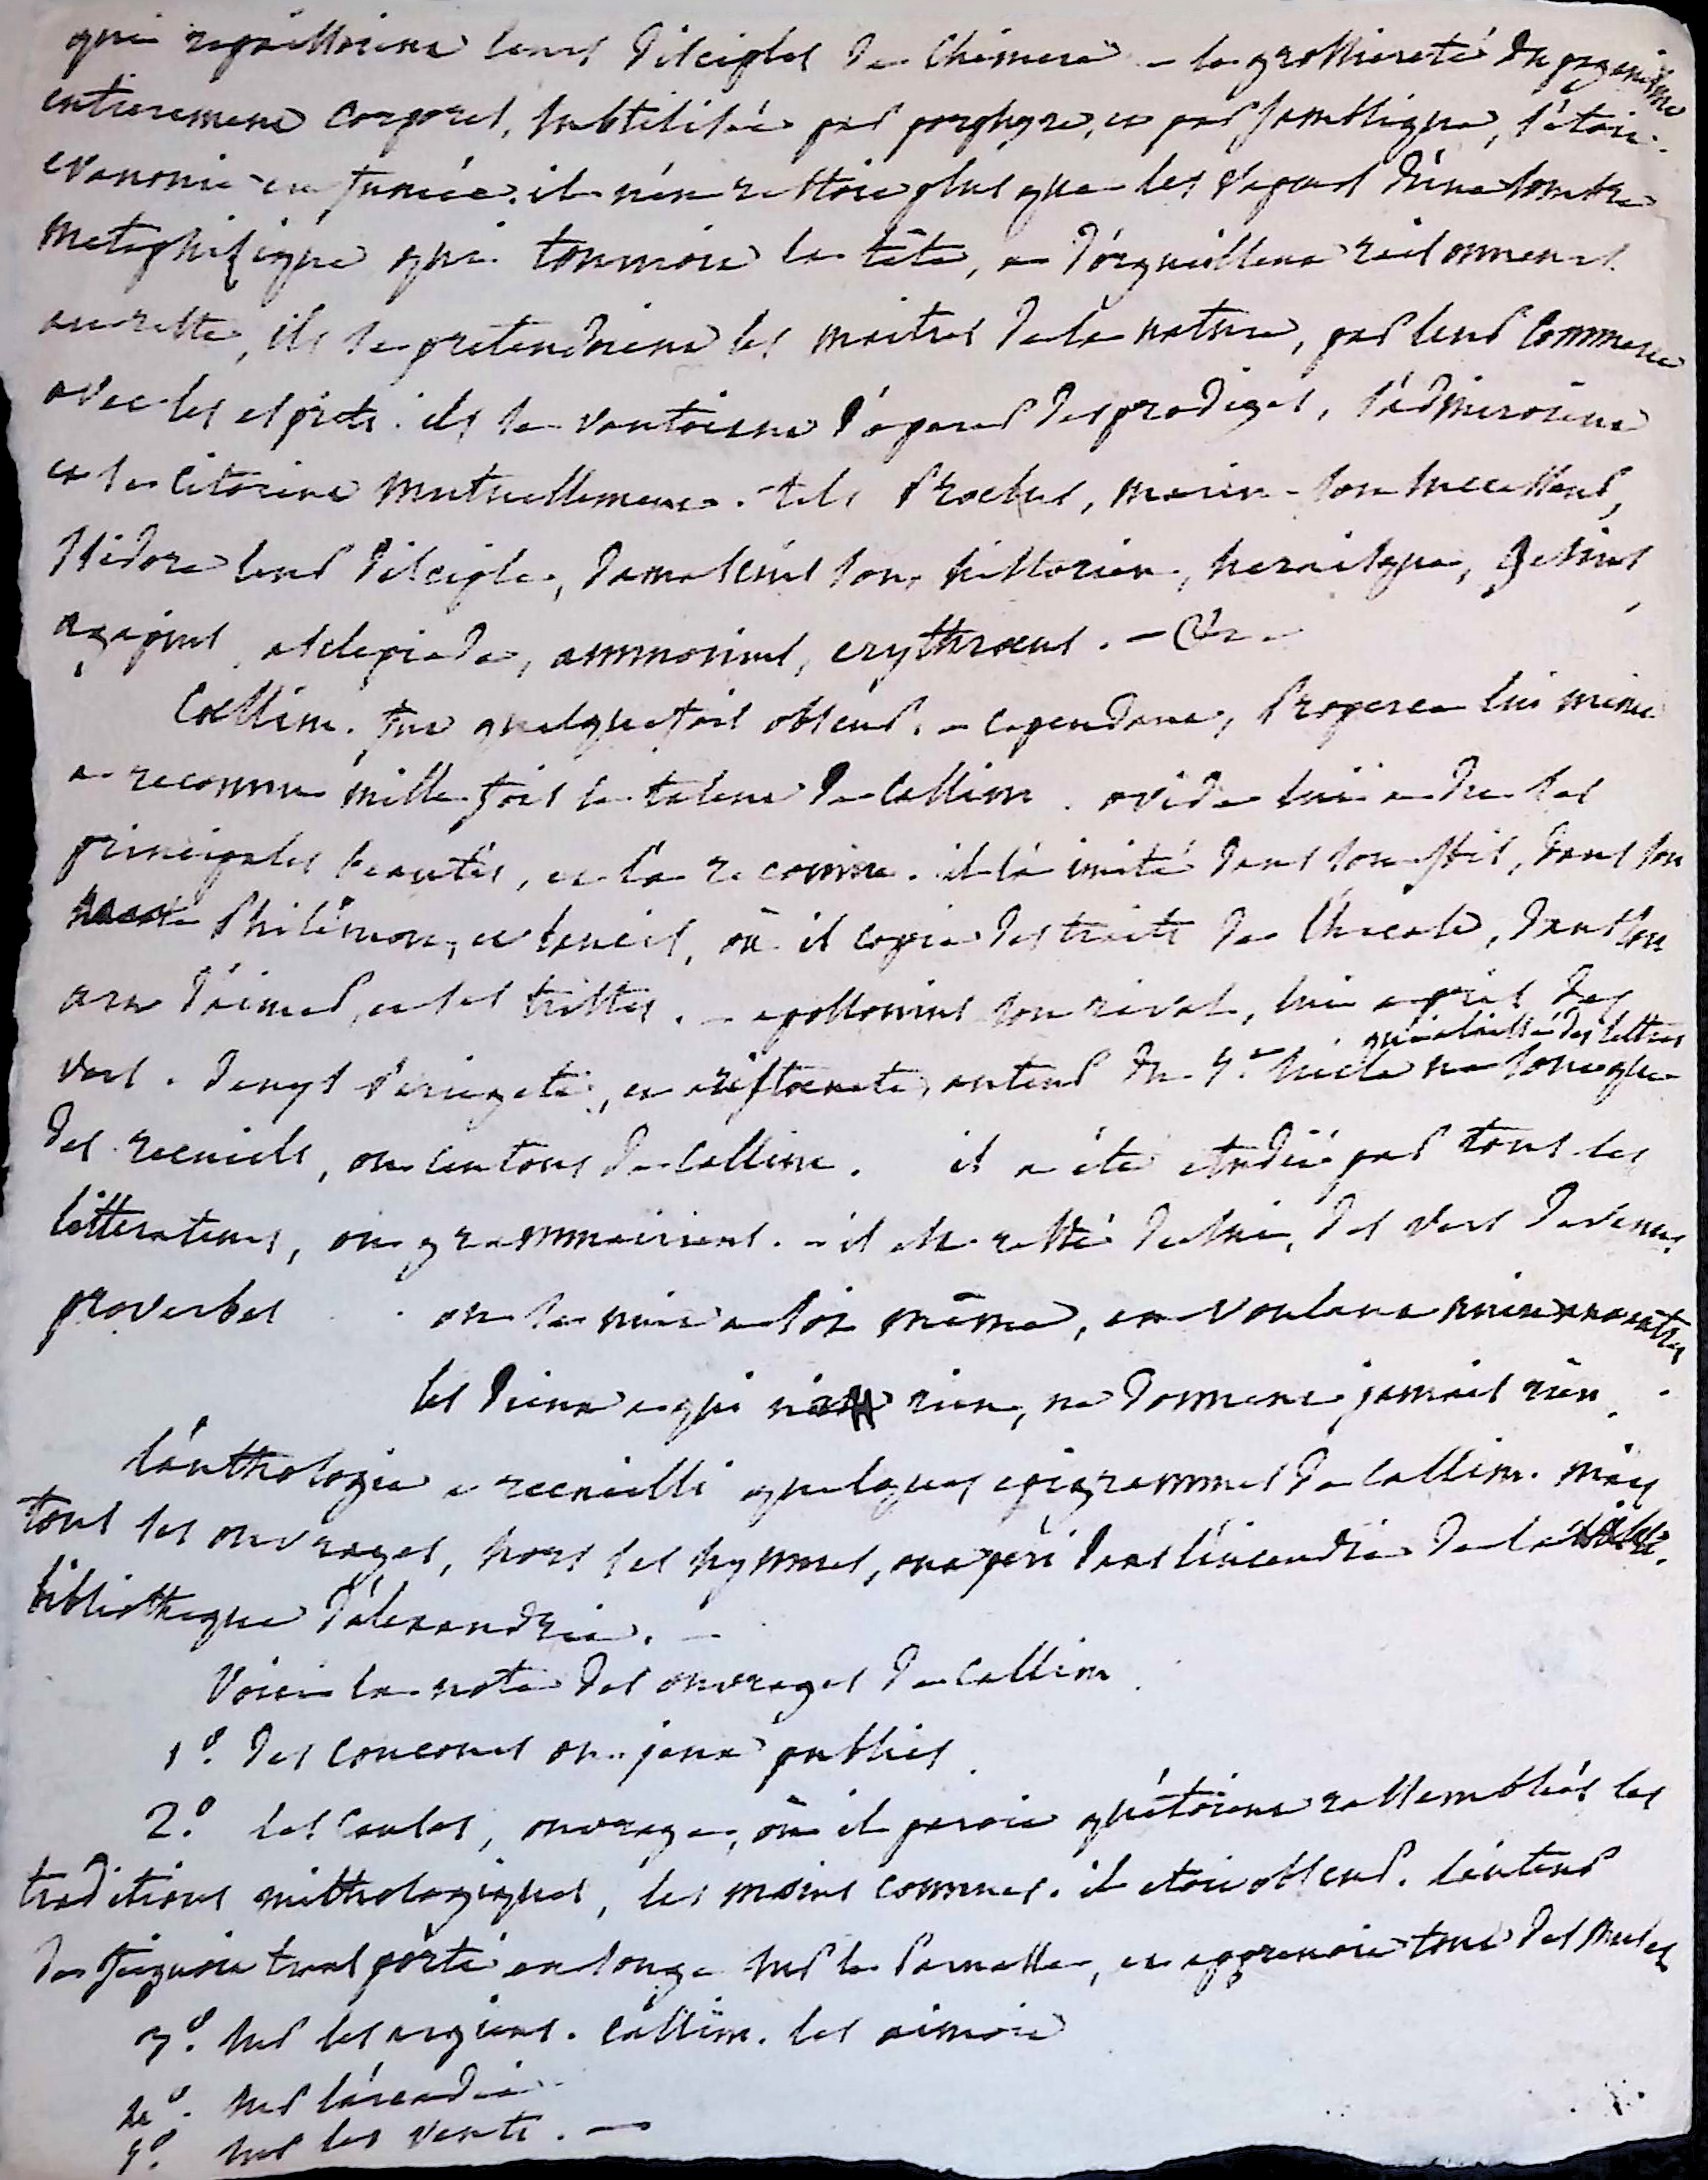 qui repaissoient leurs disciples de chimeres - la grossiereté du paganisme
entierement corporel, subtilisée par porphyre, et par jamblique, s'étoit
evanouie en fumée. il n'en restoit plus que les vapeurs d'une sombre
metaphisique qui tournoit la tête, a d'orgueilleux raisonneurs.
au reste, ils se pretendoient les maitres de la nature, par leur commerce
avec les esprits. ils se vantoient d'operer des prodiges, s'admiroient
et se citoient mutuellement. tels Proclus, marin son successeur,
Isidore leur disciple, damascius son historien, heraisque, gesius,
agapius, asclepiade, ammonius, erythraeus. - &c. -
Callim. fut quelquefois obscur. - cependant, Properce lui même
a reconnu mille fois le talent de Callim. ovide lui a du ses
principales beautés, et l'a reconnu. il l'a imité dans son ibis, dans son
Philemon, et baucis, où il copie des traits de l'hecale, dans son
art d'aimer, et ses tristes. - apollonius son rival, lui a pris des
vers. denys Periegete, et aristoenete, auteur du 4.e siecle qui a laissé des lettres ne sont que
des recueils, ou centons de Callim. il a été etudié par tous les
litterateurs, ou grammairiens. - il est resté de lui, des vers devenus
proverbes . on se nuit a soi même, en voulant nuire aux autres
les dieux a qui n'a rien, ne donnent jamais rien.
l'anthologie a recueilli quelques epigrammes de Callim. mais
tous ses ouvrages, hors ses hymnes, ont péri dans l'incendie de la
bibliotheque d'alexandrie. -
Voici la note des ouvrages de Callim.
1.º des concours ou jeux publics.
2.º les causes, ouvrage, où il paroit qu'étoient rassemblées les
traditions mithologiques, les moins connues. il etoit obscur. l'auteur
se feignoit transporté en songe sur le Parnasse, et apprenoit tout des muses
3.º sur les argiens. Callim. les aimoit
4.º sur l'arcadie.
5.º sur les vents. -